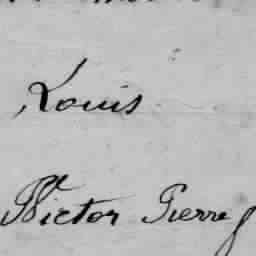 Louis
Victor Pierre